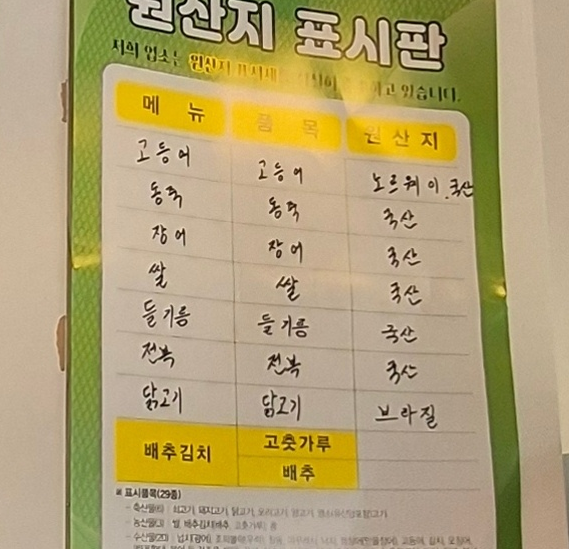 원산지 표시판
저희 업소는 원산지 표시제를 성실히 하고 있습니다.
메뉴 품목 원산지
고등어 고등어 노르웨이.국산
동죽 동죽 국산
장어 장어 국산
쌀 쌀 국산
들기름 들기름 국산
전복 전복 국산
닭고기 닭고기 브라질
배추김치 고춧가루
배추
※ 표시품목(29종)
- 축산물(6) 쇠고기, 돼지고기, 닭고기, 오리고기, 양고기,
- 농산물(3) 쌀, 배추김치(배추, 고춧가루), 콩
- 수산물(20)